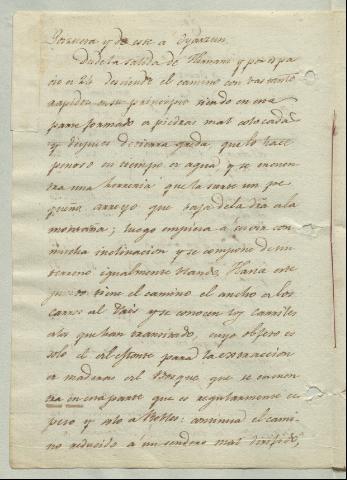 y de este a Oyarzun.
Desde la salida de Hernani y por espa
cio de 24 desciende el camino con bastante
rapidez en su principio siendo en esta
parte formado de piedras mal colocadas
y despues de tierra greda, que lo hace
penoso en tiempo de agua, y se encuen
tra una herreria que la surte un pe
queño arroyo que baja de la dra a la
montaña; luego empieza a subir con
mucha inclinacion y se compone de un
terreno igualmente blando. Hasta este
punto tiene el camino el ancho de los
carros del Pais y se conocen los carriles
de los que han transitado, cuyo objeto es
solo el de la extraccion
de maderas del Bosque, que se encuen
tra en esta parte que es regularmente es
peso y alto de Robles: continua el cami
no reducido a un sendero mal dirigido,